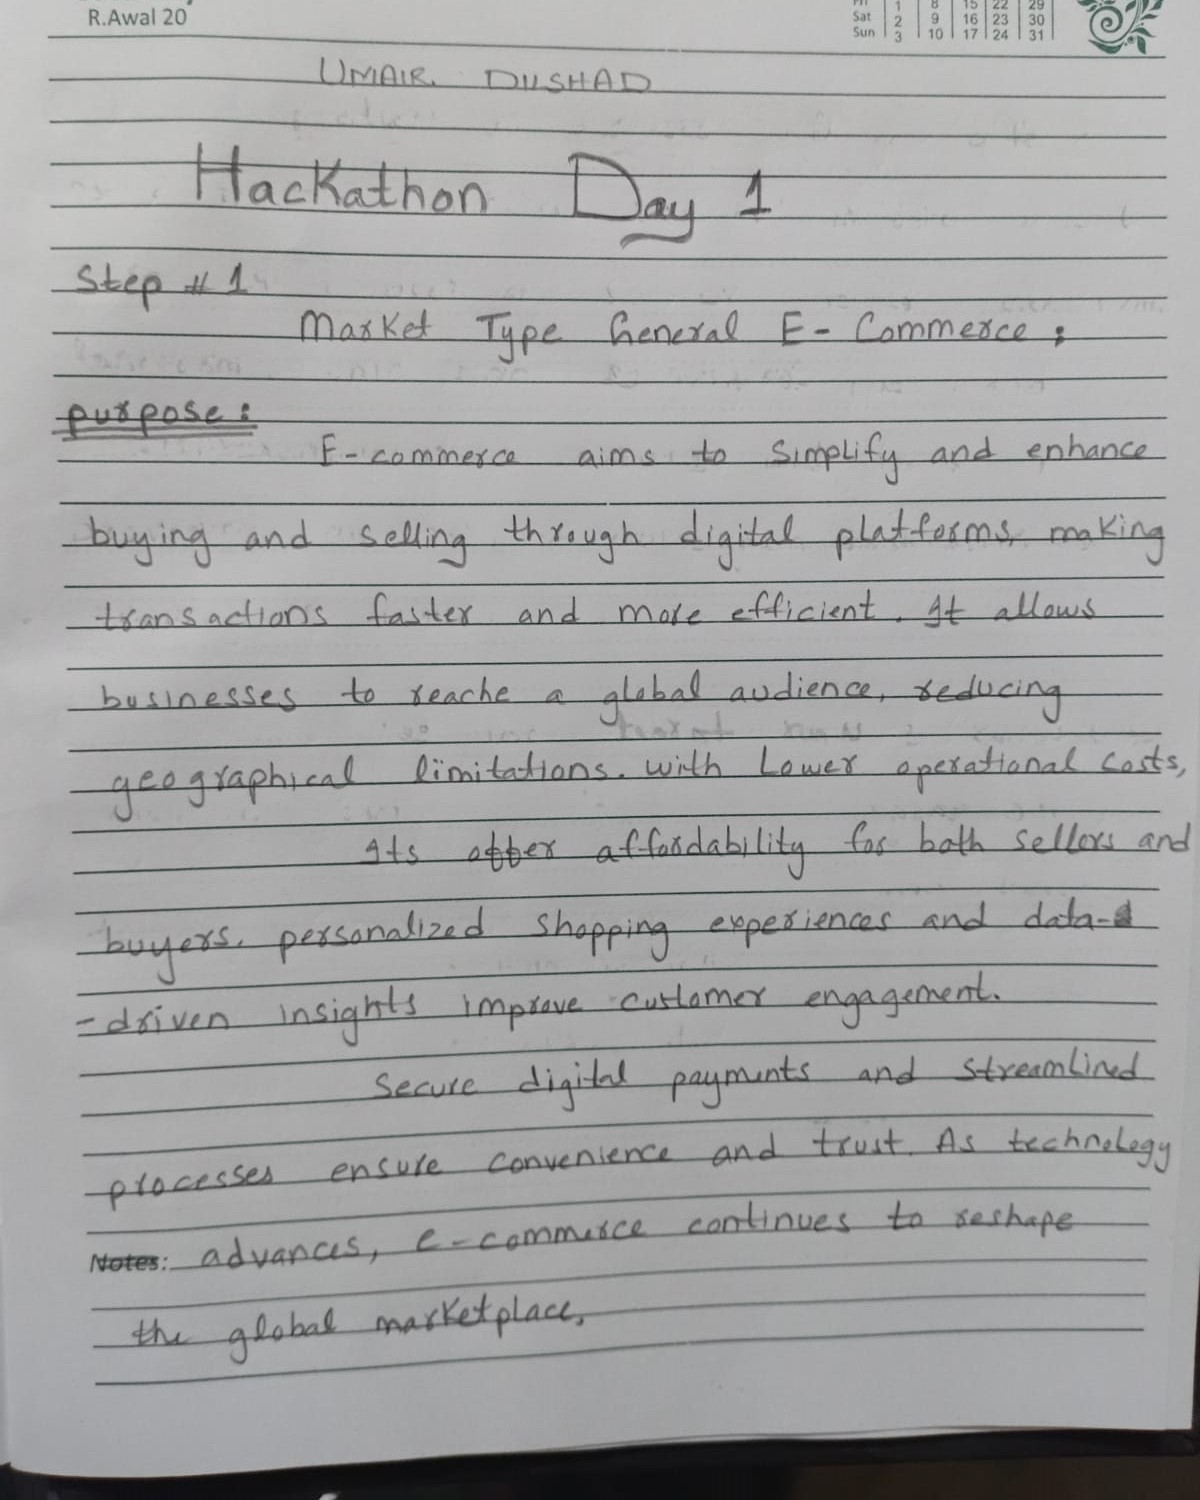 R.Awal 20
Fri 1 8 15 22 29
Sat 2 9 16 23 30
Sun 3 10 17 24 31
UMAIR DILSHAD
Hackathon Day 1
Step # 1
Market Type General E-Commerce :
purpose :
E-commerce aims to Simplify and enhance
buying and selling through digital platforms, making
transactions faster and more efficient. It allows
businesses to reache a global audience, reducing
geographical limitations. with Lower operational Costs,
Its offer affordability for both sellers and
buyers. personalized Shopping experiences and data-
-driven insights improve customer engagement.
Secure digital payments and streamlined
processes ensure convenience and trust. As technology
Notes: advances, e-commerce continues to reshape
the global marketplace,